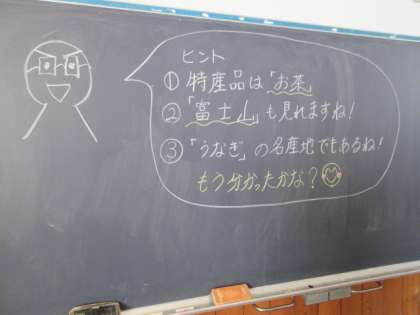 ヒント
① 特産品は「お茶」
② 「富士山」も見れますね!
③ 「うなぎ」の名産地でもあるね!
もう分かったかな?